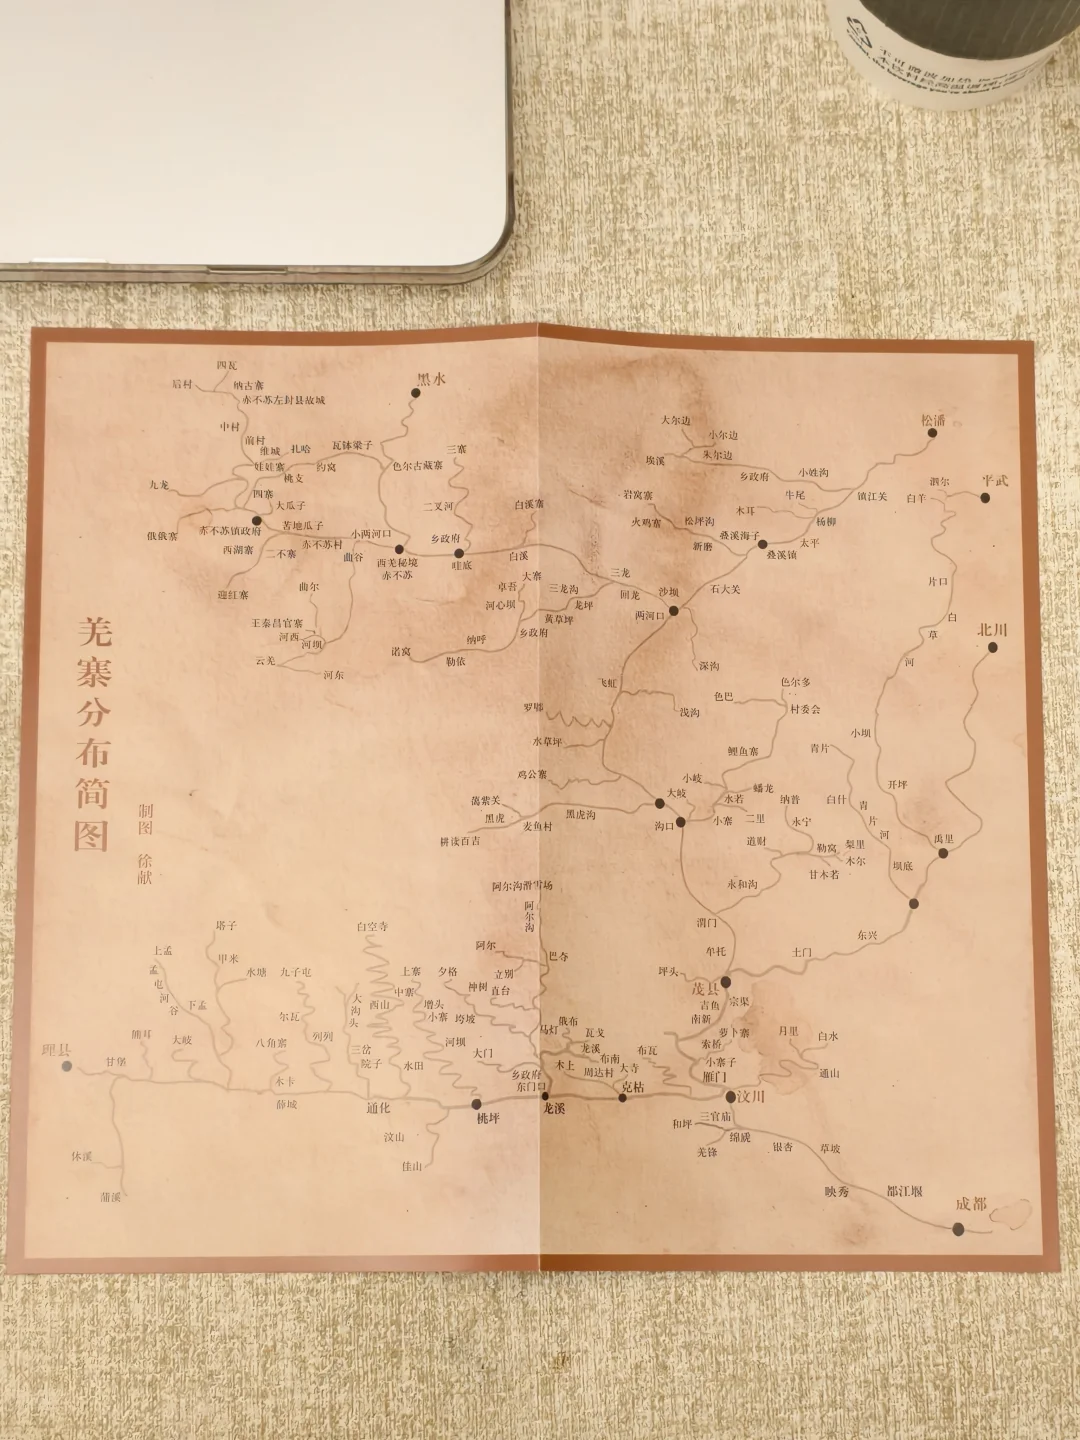 不可微波加热
羌寨分布简图
制图 徐献
四瓦
后村
纳古寨
赤不苏左封县故城
中村
前村
维城
扎哈
瓦钵梁子
娃娃寨
约窝
桃支
九龙
四寨
大瓜子
赤不苏镇政府
苦地瓜子
俄俄寨
西湖寨
二不寨
赤不苏村
小两河口
曲谷
西羌秘境
赤不苏
迎红寨
曲尔
王泰昌官寨
河西
河坝
云羌
河东
黑水
色尔古藏寨
三寨
二叉河
乡政府
哇底
白溪寨
白溪
大寨
卓吾
河心坝
三龙沟
龙坪
黄草坪
乡政府
纳呼
勒依
诺窝
三龙
回龙
沙坝
两河口
石大关
深沟
大尔边
小尔边
朱尔边
埃溪
乡政府
小姓沟
松潘
镇江关
牛尾
木耳
杨柳
太平
岩窝寨
火鸡寨
松坪沟
新磨
叠溪海子
叠溪镇
泗尔
白羊
平武
片口
白
草
河
北川
飞虹
浅沟
罗都
水草坪
鸡公寨
色尔多
色巴
村委会
鲤鱼寨
小坝
青片
开坪
白什
青
片
河
禹里
坝底
蔼紫关
黑虎
麦鱼村
耕读百吉
黑虎沟
大岐
沟口
小岐
水若
蟠龙
小寨
二里
纳普
永宁
道财
勒窝
梨里
木尔
甘木若
永和沟
渭门
牟托
坪头
茂县
土门
东兴
吉鱼
宗渠
南新
萝卜寨
索桥
小寨子
雁门
月里
白水
通山
汶川
三官庙
和坪
绵虒
羌锋
银杏
草坡
映秀
都江堰
成都
阿尔沟滑雪场
阿
尔
沟
阿尔
巴夺
立别
直台
夕格
神树
垮坡
马灯
俄布
瓦戈
龙溪
布南
木上
周达村
大寺
布瓦
克枯
大门
乡政府
东门口
龙溪
桃坪
上寨
中寨
增头
小寨
河坝
白空寺
西山
水田
大
沟
头
三岔
院子
通化
汶山
佳山
塔子
甲米
水塘
九子屯
尔瓦
列列
八角寨
木卡
薛城
上孟
孟
屯
河
谷
下孟
大岐
熊耳
甘堡
理县
休溪
蒲溪